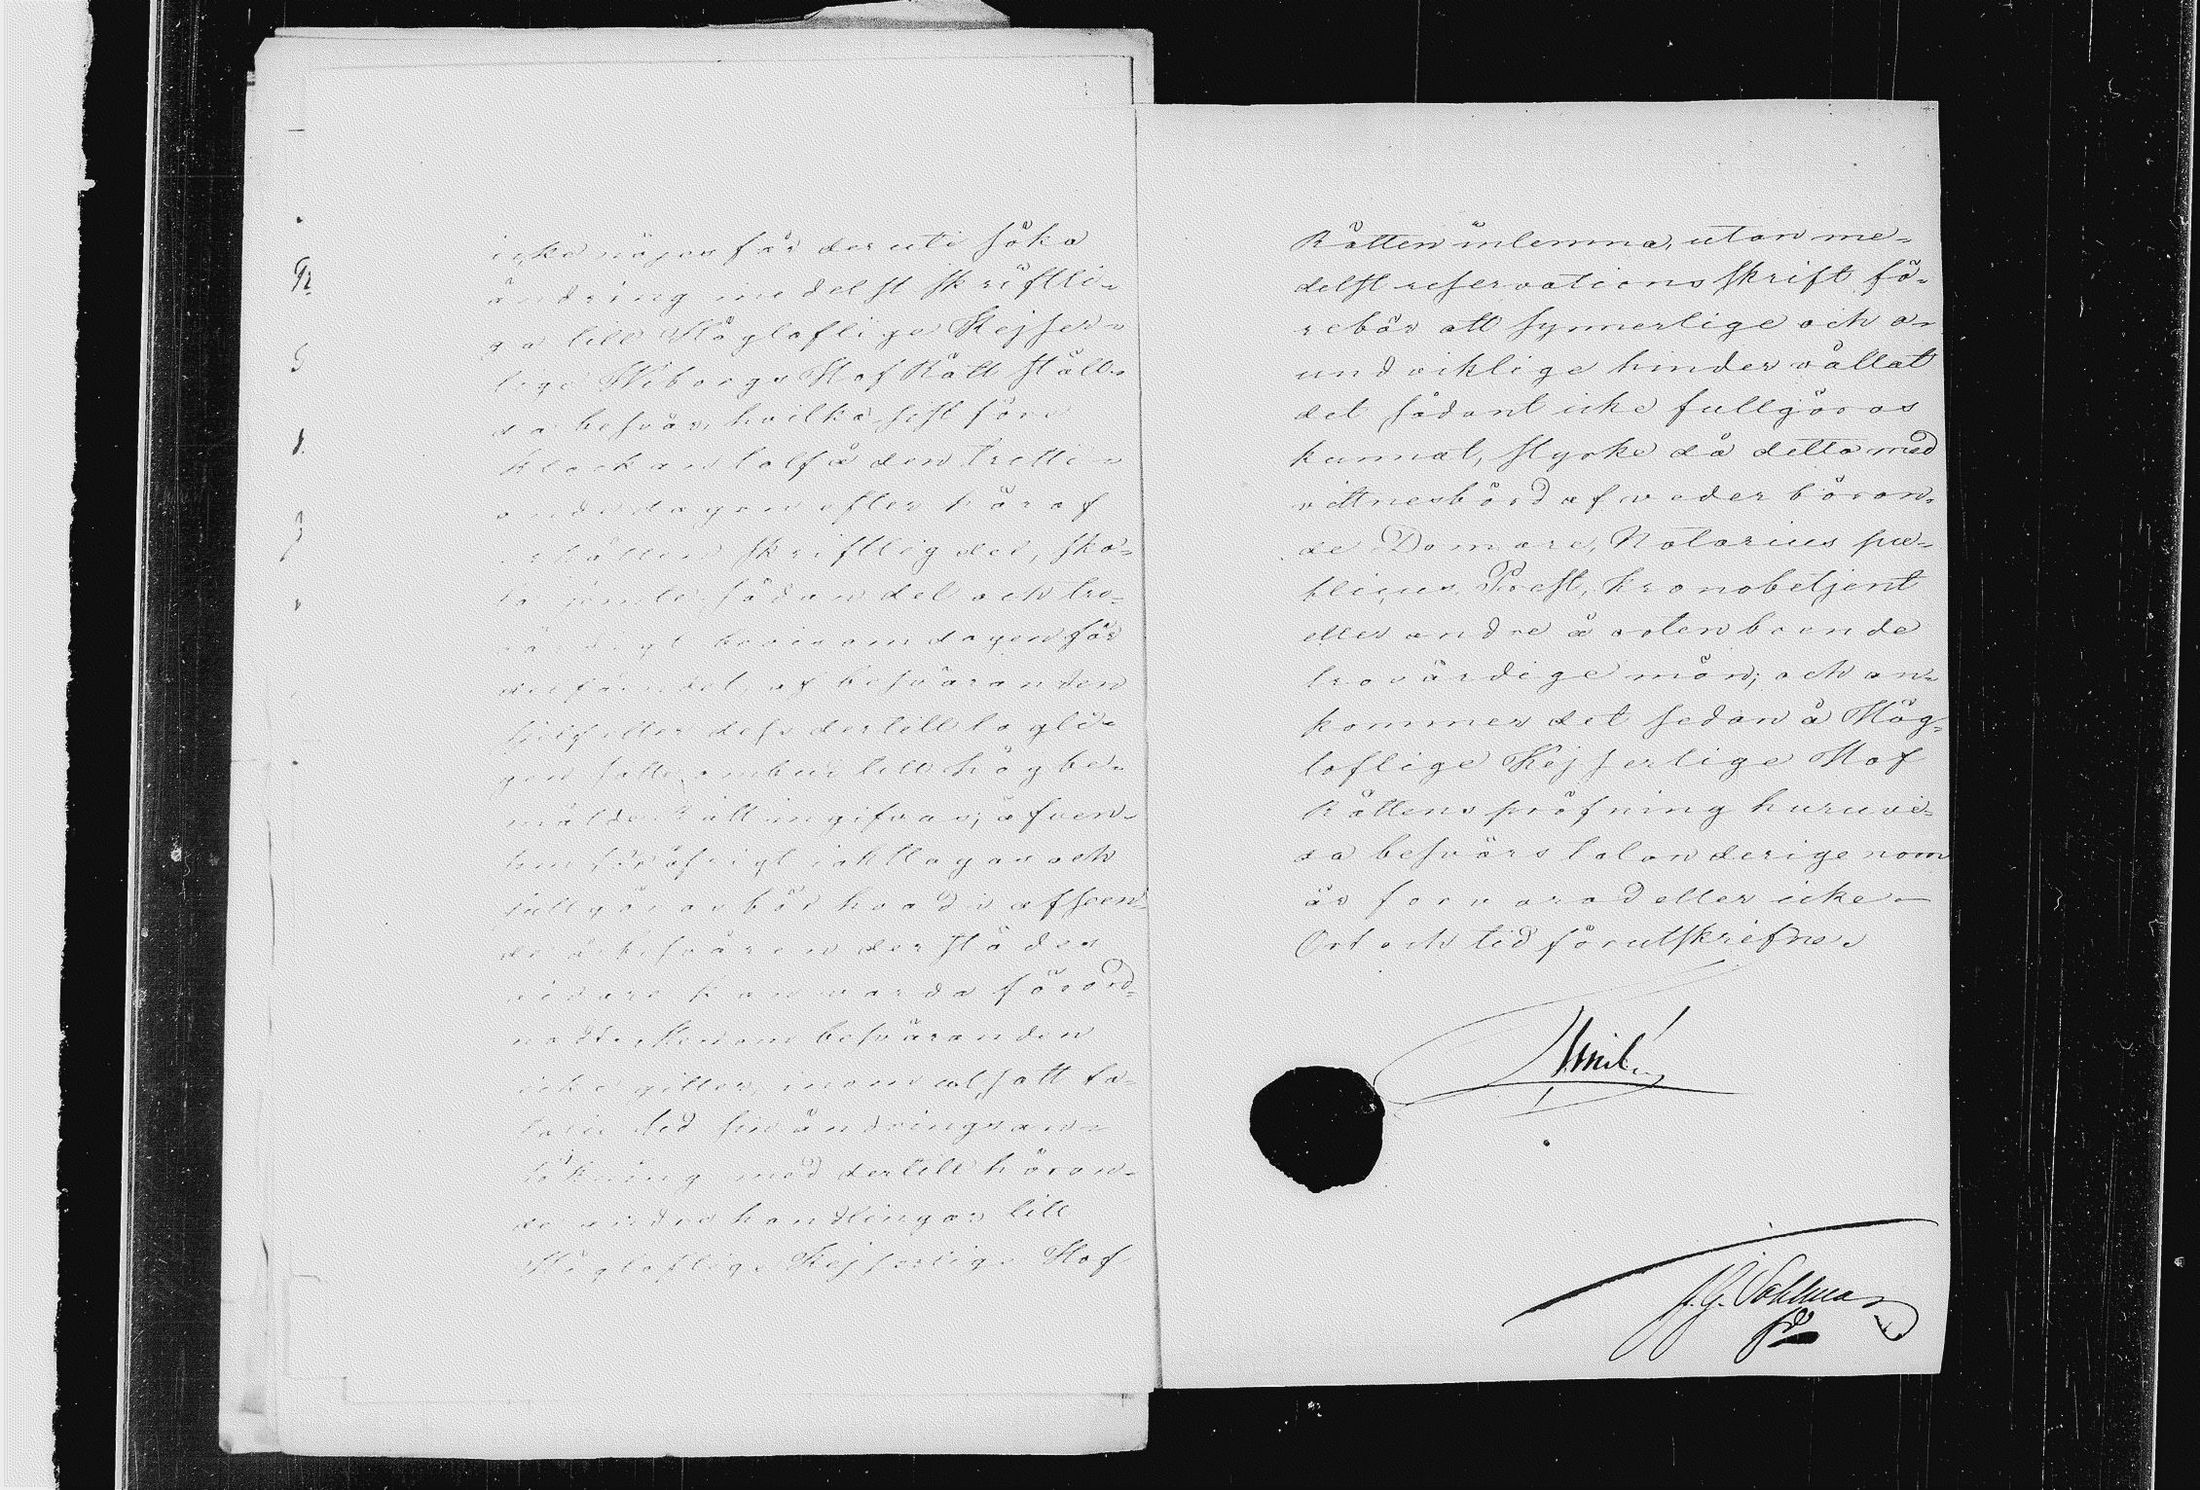 icke nöjes får deruti söka
ändring medelst skriftli-
ga till Högloflige Kejser-
lige Wiborgs Hof Rätt ställ-
da besvär, hvilka sist före
klockan tolf å den tretti-
onde dagen efter häraf
erhållen skriftlig del, sko-
la jemte sådan del och tro-
värdigt bevis om dagen för
delfåendet, af besväranden
sjelf eller dess dertill lagli-
gen satte ombud till högbe-
mälde Rätt ingifvas; äfven-
som för öfrigt iakttagas och
fullgöras bör hvad i afseen-
de å besvären der städes
vidare kan warda förord-
nadt; skolande besväranden
icke gitter inom utsatt fa-
talie tid sin ändringsan-
sökning med dertill höran-
de andra handlingar till
Högloflige Kejserlige Hof
Rätten inlemna, utan me-
delst reservationsskrift fö-
rebär att synnerlige och o-
undviklige hinder vållat
det sådant icke fullgöras
kunnat, styrke då detta med
vittnesbörd af vederböran-
de Domare, Notarius pu-
blicus, Prest, kronobetjent
eller andre å orten boende
trovärdige män; och an-
kommer det sedan å Hög-
loflige Kejserlige Hof
Rättens pröfning huruvi-
da besvärstalan derigenom
är förvarad eller icke.—
Ort och tid förutskrefne.
J. G. Dahlman